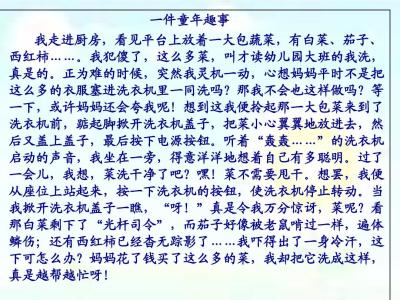 一件童年趣事
我走进厨房，看见平台上放着一大包蔬菜，有白菜、茄子、
西红柿……。我犯傻了，这么多菜，叫才读幼儿园大班的我洗，
真是的。正为难的时候，突然我灵机一动，心想妈妈平时不是把
这么多的衣服塞进洗衣机里一同洗吗？那我不会也这样做吗？等
一下，或许妈妈还会夸我呢！想到这我便拎起那一大包菜来到了
洗衣机前，踮起脚掀开洗衣机盖子，把菜小心翼翼地放进去，然
后又盖上盖子，最后按下电源按钮。听着“轰轰……”的洗衣机
启动的声音，我坐在一旁，得意洋洋地想着自己有多聪明。过了
一会儿，我想，菜洗干净了吧？嘿！菜不需要甩干。想罢，我便
从座位上站起来，按一下洗衣机的按钮，使洗衣机停止转动。当
我掀开洗衣机盖子一瞧，“呀！”真是令我万分惊讶，菜呢？看
那白菜剩下了“光杆司令”，而茄子好像被老鼠啃过一样，遍体
鳞伤；还有西红柿已经杳无踪影了……我吓得出了一身冷汗，这
下可怎么办？妈妈花了钱买了这么多的菜，我却把它洗成这样，
真是越帮越忙呀！